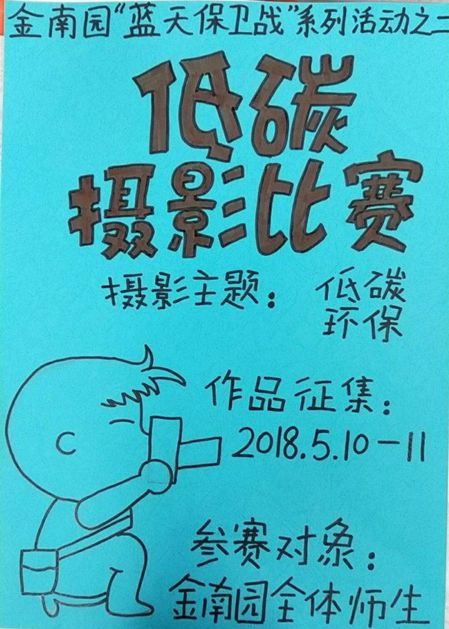 金南园“蓝天保卫战”系列活动之二
低碳
摄影比赛
摄影主题：低碳
环保
作品征集：
2018.5.10-11
参赛对象：
金南园全体师生